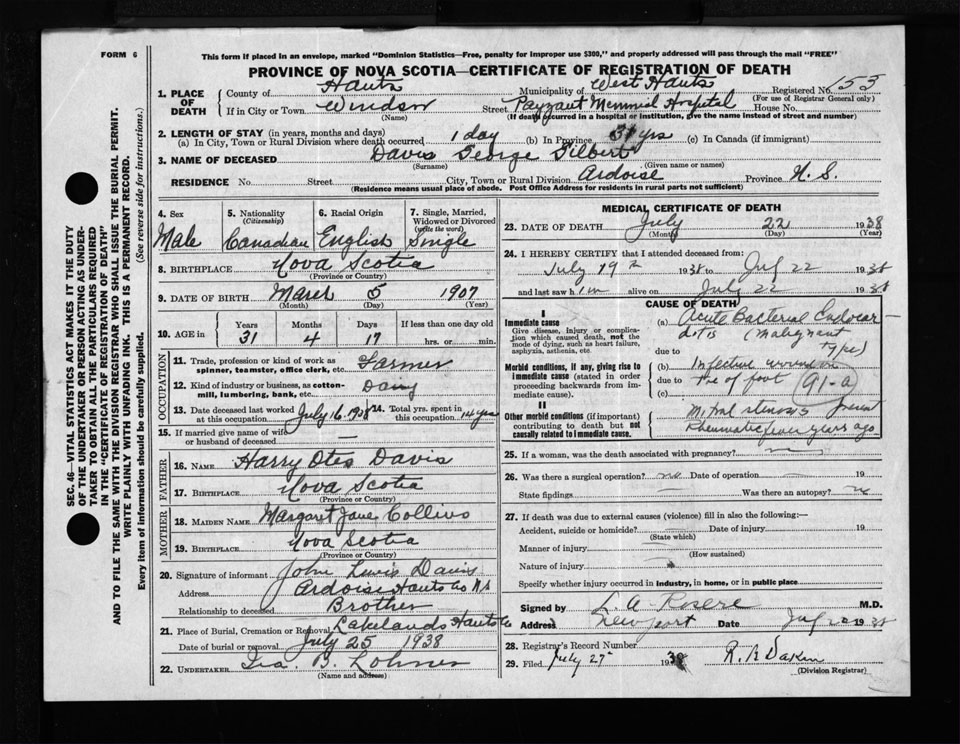 FORM 6
This form if placed in an envelope, marked "Dominion Statistics—Free, penalty for improper use $300," and properly addressed will pass through the mail "FREE"
PROVINCE OF NOVA SCOTIA—CERTIFICATE OF REGISTRATION OF DEATH
1. PLACE OF DEATH { County of Hants Municipality of West Hants Registered No. 153
(For use of Registrar General only)
If in City or Town Windsor Street Payzant Memorial Hospital House No.
(Name) (If death occurred in a hospital or institution, give the name instead of street and number)
2. LENGTH OF STAY (in years, months and days)
(a) In City, Town or Rural Division where death occurred 1 day (b) In Province 31 yrs (c) In Canada (if immigrant)
3. NAME OF DECEASED Davis George Gilbert
(Surname) (Given name or names)
RESIDENCE No. Street City, Town or Rural Division Ardoise Province N. S.
(Residence means usual place of abode. Post Office Address for residents in rural parts not sufficient)
SEC. 46—VITAL STATISTICS ACT MAKES IT THE DUTY
OF THE UNDERTAKER OR PERSON ACTING AS UNDER-
TAKER TO OBTAIN ALL THE PARTICULARS REQUIRED
IN THE "CERTIFICATE OF REGISTRATION OF DEATH"
AND TO FILE THE SAME WITH THE DIVISION REGISTRAR WHO SHALL ISSUE THE BURIAL PERMIT.
WRITE PLAINLY WITH UNFADING INK. THIS IS A PERMANENT RECORD.
Every item of information should be carefully supplied. (See reverse side for instructions.)
4. Sex 5. Nationality (Citizenship) 6. Racial Origin 7. Single, Married, Widowed or Divorced (write the word)
Male Canadian English Single
8. BIRTHPLACE Nova Scotia
(Province or Country)
9. DATE OF BIRTH March 5 1907
(Month) (Day) (Year)
10. AGE in Years Months Days If less than one day old
31 4 17 hrs. or min.
OCCUPATION
11. Trade, profession or kind of work as
spinner, teamster, office clerk, etc. Farmer
12. Kind of industry or business, as cotton-
mill, lumbering, bank, etc. Dairy
13. Date deceased last worked at this occupation July 16 1938 14. Total yrs. spent in this occupation 14 yrs
15. If married give name of wife
or husband of deceased —
FATHER
16. NAME Harry Otis Davis
17. BIRTHPLACE Nova Scotia
(Province or Country)
MOTHER
18. MAIDEN NAME Margaret Jane Collins
19. BIRTHPLACE Nova Scotia
(Province or Country)
20. Signature of informant John Lewis Davis
Address Ardoise Hants Co N.S.
Relationship to deceased Brother
21. Place of Burial, Cremation or Removal Lakelands Hants Co
Date of burial or removal July 25 1938
22. UNDERTAKER Ira. B. Lohnes
(Name and address)
MEDICAL CERTIFICATE OF DEATH
23. DATE OF DEATH July 22 1938
(Month) (Day) (Year)
24. I HEREBY CERTIFY that I attended deceased from:
July 19th 1938 to July 22 1938
and last saw him alive on July 22 1938
CAUSE OF DEATH
I
Immediate cause
Give disease, injury or complica-
tion which caused death, not the
mode of dying, such as heart failure,
asphyxia, asthenia, etc.
(a) Acute Bacterial Endocar-
ditis (Malignant
type)
due to
Morbid conditions, if any, giving rise to
immediate cause (stated in order
proceeding backwards from im-
mediate cause).
(b) Infective wound on
due to toe of foot 91-a
(c)
II
Other morbid conditions (if important)
contributing to death but not
causally related to immediate cause.
Mitral stenosis from
Rheumatic fever years ago
25. If a woman, was the death associated with pregnancy?
26. Was there a surgical operation? no Date of operation — 19
State findings — Was there an autopsy? no
27. If death was due to external causes (violence) fill in also the following:—
Accident, suicide or homicide? Date of injury 19
(State which)
Manner of injury
(How sustained)
Nature of injury
Specify whether injury occurred in industry, in home, or in public place
Signed by M.D.
Address Newport Date July 1938
28. Registrar's Record Number
29. Filed July 27 1938 R. A Dakin
(Division Registrar)